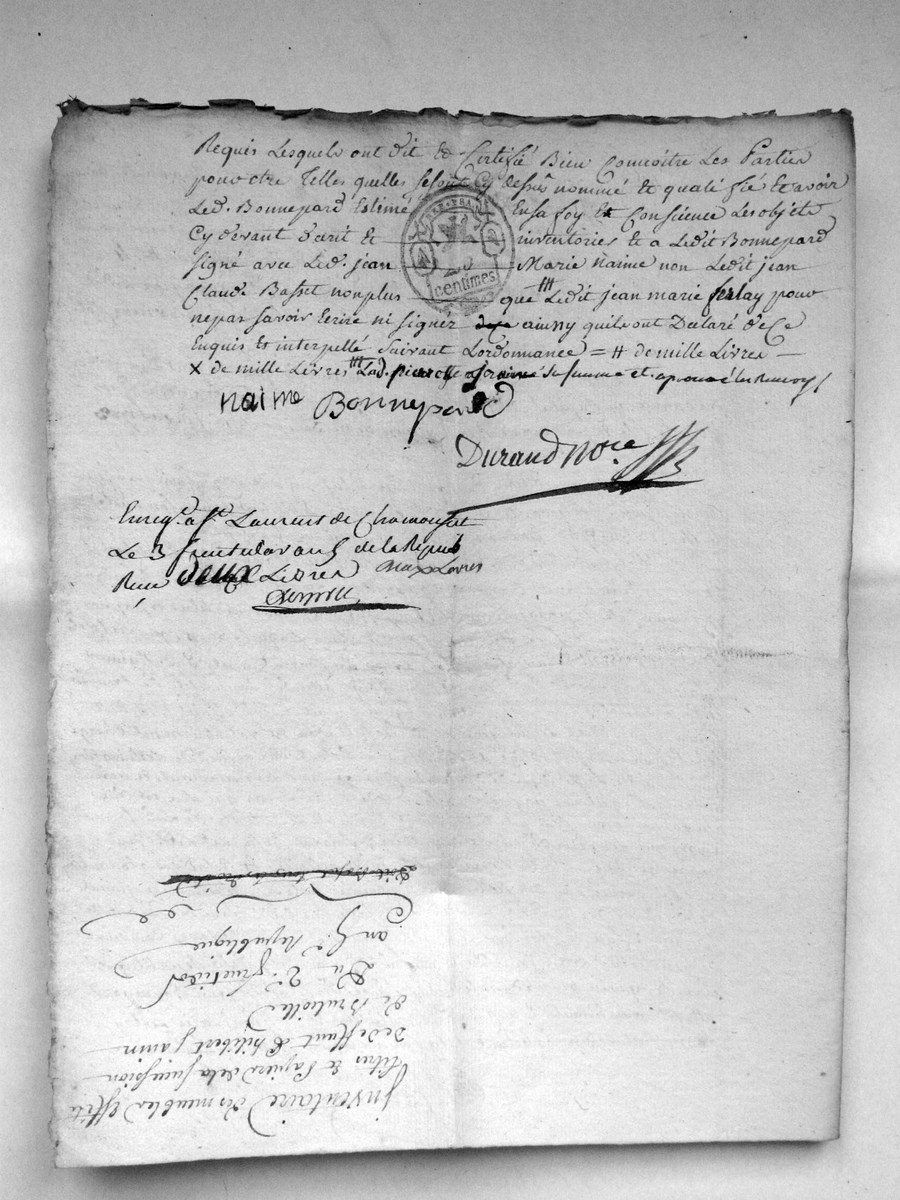 Requis Lesquels ont dit & Certifié Bien Connoitre Les Parties
pour être telles quelles se sont Cy dessus nommé & qualifié & avoir
Led. Bonnepard Estimé En sa foy & Conscience Les objets
Cy devant d'crit & inventories & a Ledit Bonnepard
signé avec Led. jean Marie naime non Ledit jean
Claude Basset non plus que Ledit jean marie ferlay pour
ne par savoir Ecrire ni signér ainsy quils ont Declaré de Ce
Enquis & interpellé suivant Lordonnance = # de mille Livres =
X de mille Livres
naime Bonnepard
Durand Nore
Enreg. a St. Laurent de Chamousset
Le 3 fructidor an 5 de la Repub
Recu deux Livres deux Livres
REP. FRA
centimes
inventaire des meubles Effets
titres & Papiers de la succession
de deffunt Philibert Jamin
de Bruliolles
Du 2e. fructidor
an 5e. Republique